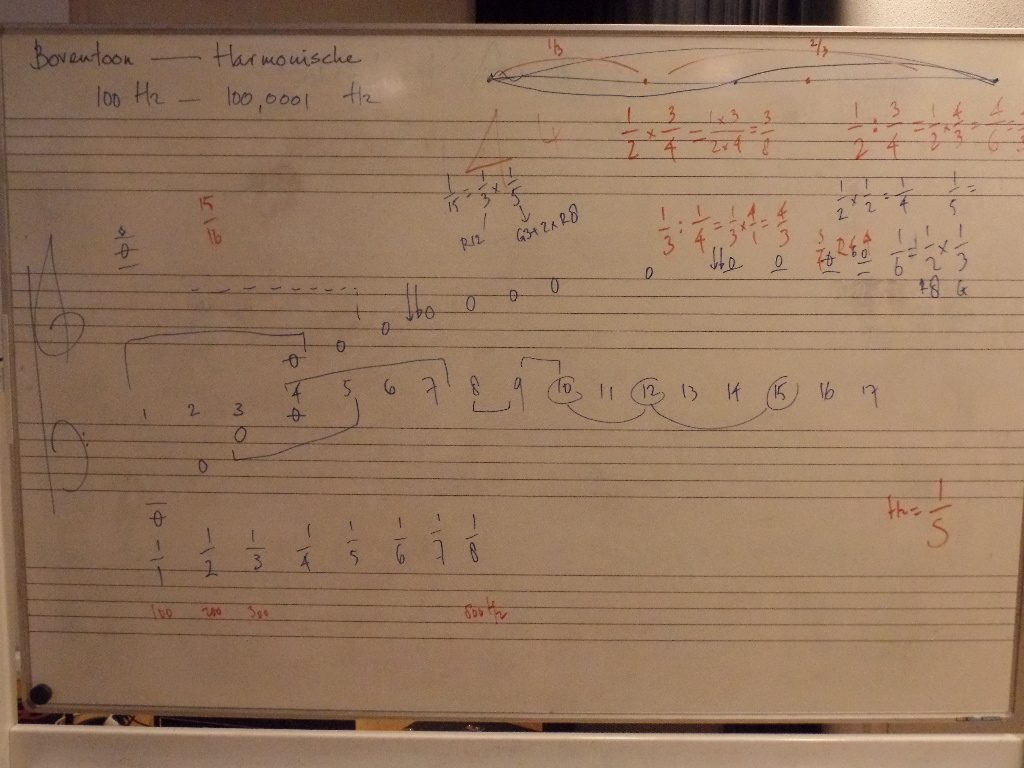 Boventoon — Harmonische
100 Hz — 100,0001 Hz
1/3 2/3
1/2 × 3/4 = 1×3/2×4 = 3/8
1/2 : 3/4 = 1/2 × 4/3 = 4/6 =
1/15 = 1/3 × 1/5
R12 G3+2×R8
15/16
1/2 × 1/2 = 1/4 1/5 =
1/3 : 1/4 = 1/3 × 4/1 = 4/3
1/6 = 1/2 × 1/3
R8 G
1 2 3 4 5 6 7 8 9 10 11 12 13 14 15 16 17
Hz = 1/S
1/1 1/2 1/3 1/4 1/5 1/6 1/7 1/8
100 200 300 800 Hz